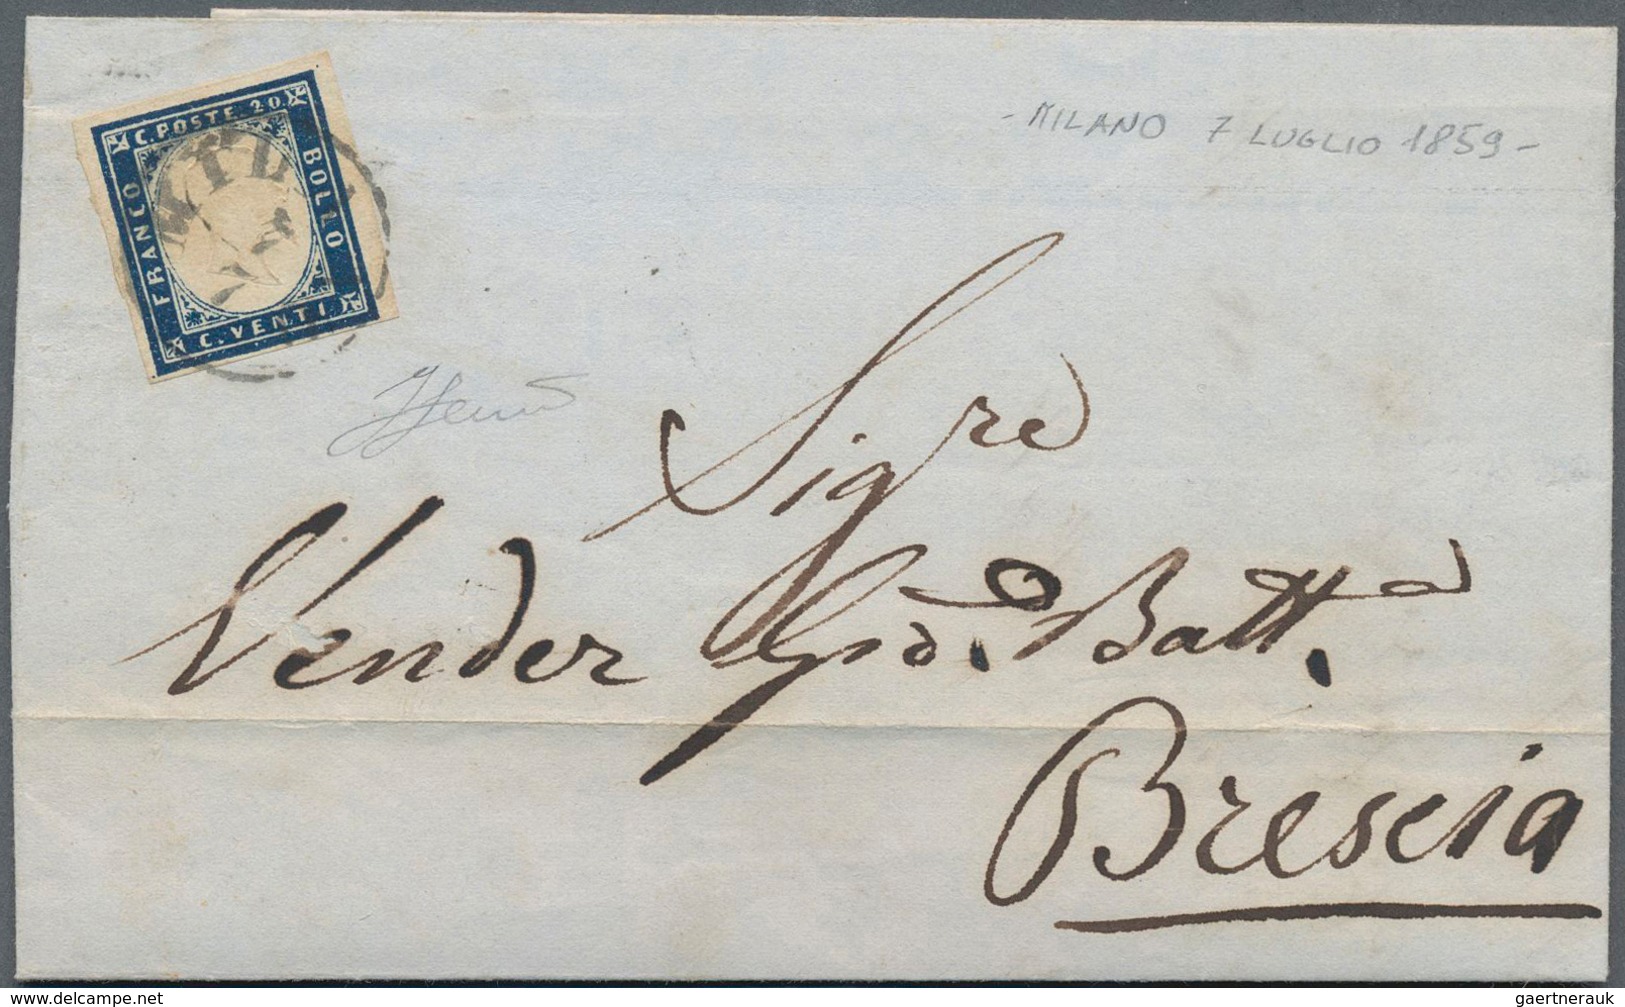 - MILANO 7 LUGLIO 1859 -
C. POSTE. 20.
FRANCO
BOLLO
C. VENTI.
MIL
7
Sig.re
Vender Gio. Batt.a
Brescia
www.delcampe.net
gaertnerauk